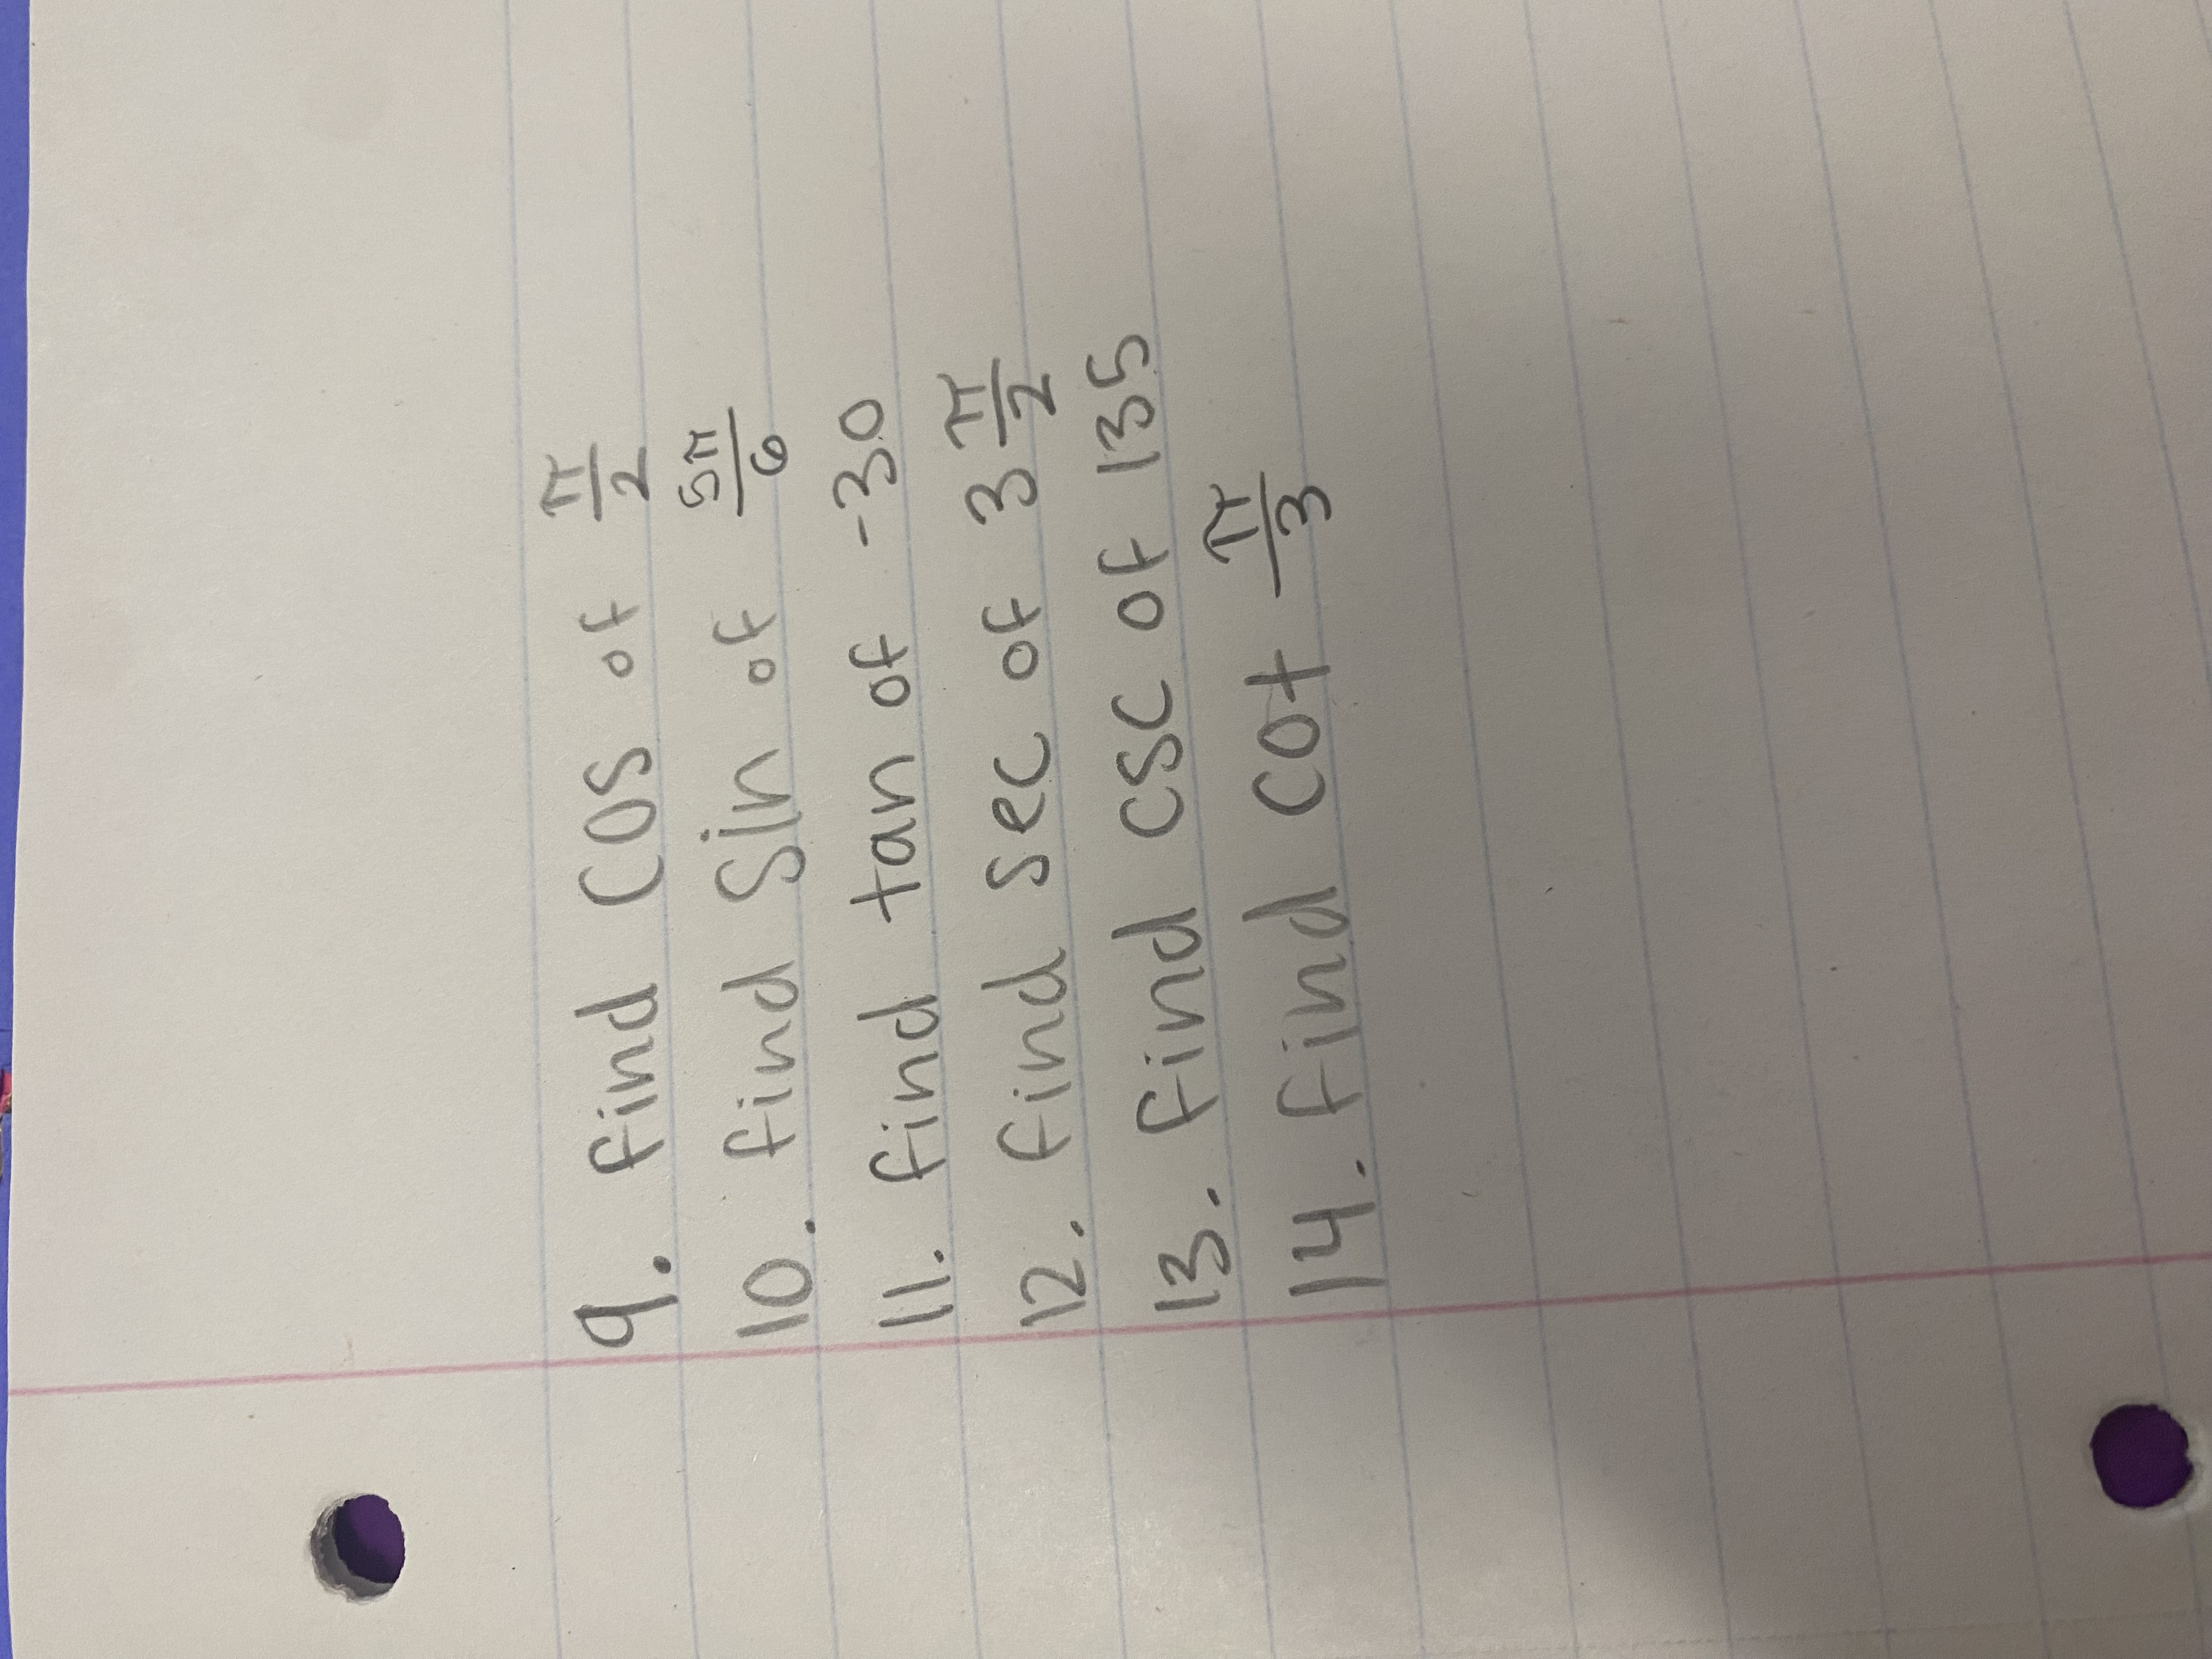 9. find cos of π/2
10. find sin of 5π/6
11. find tan of -30
12. find sec of 3 π/2
13. find csc of 135
14. find cot π/3